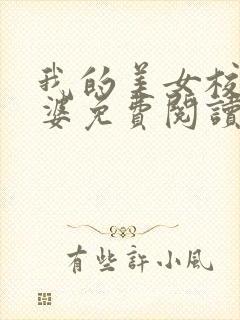 我的美女校
婆免費閱讀
有些許小風